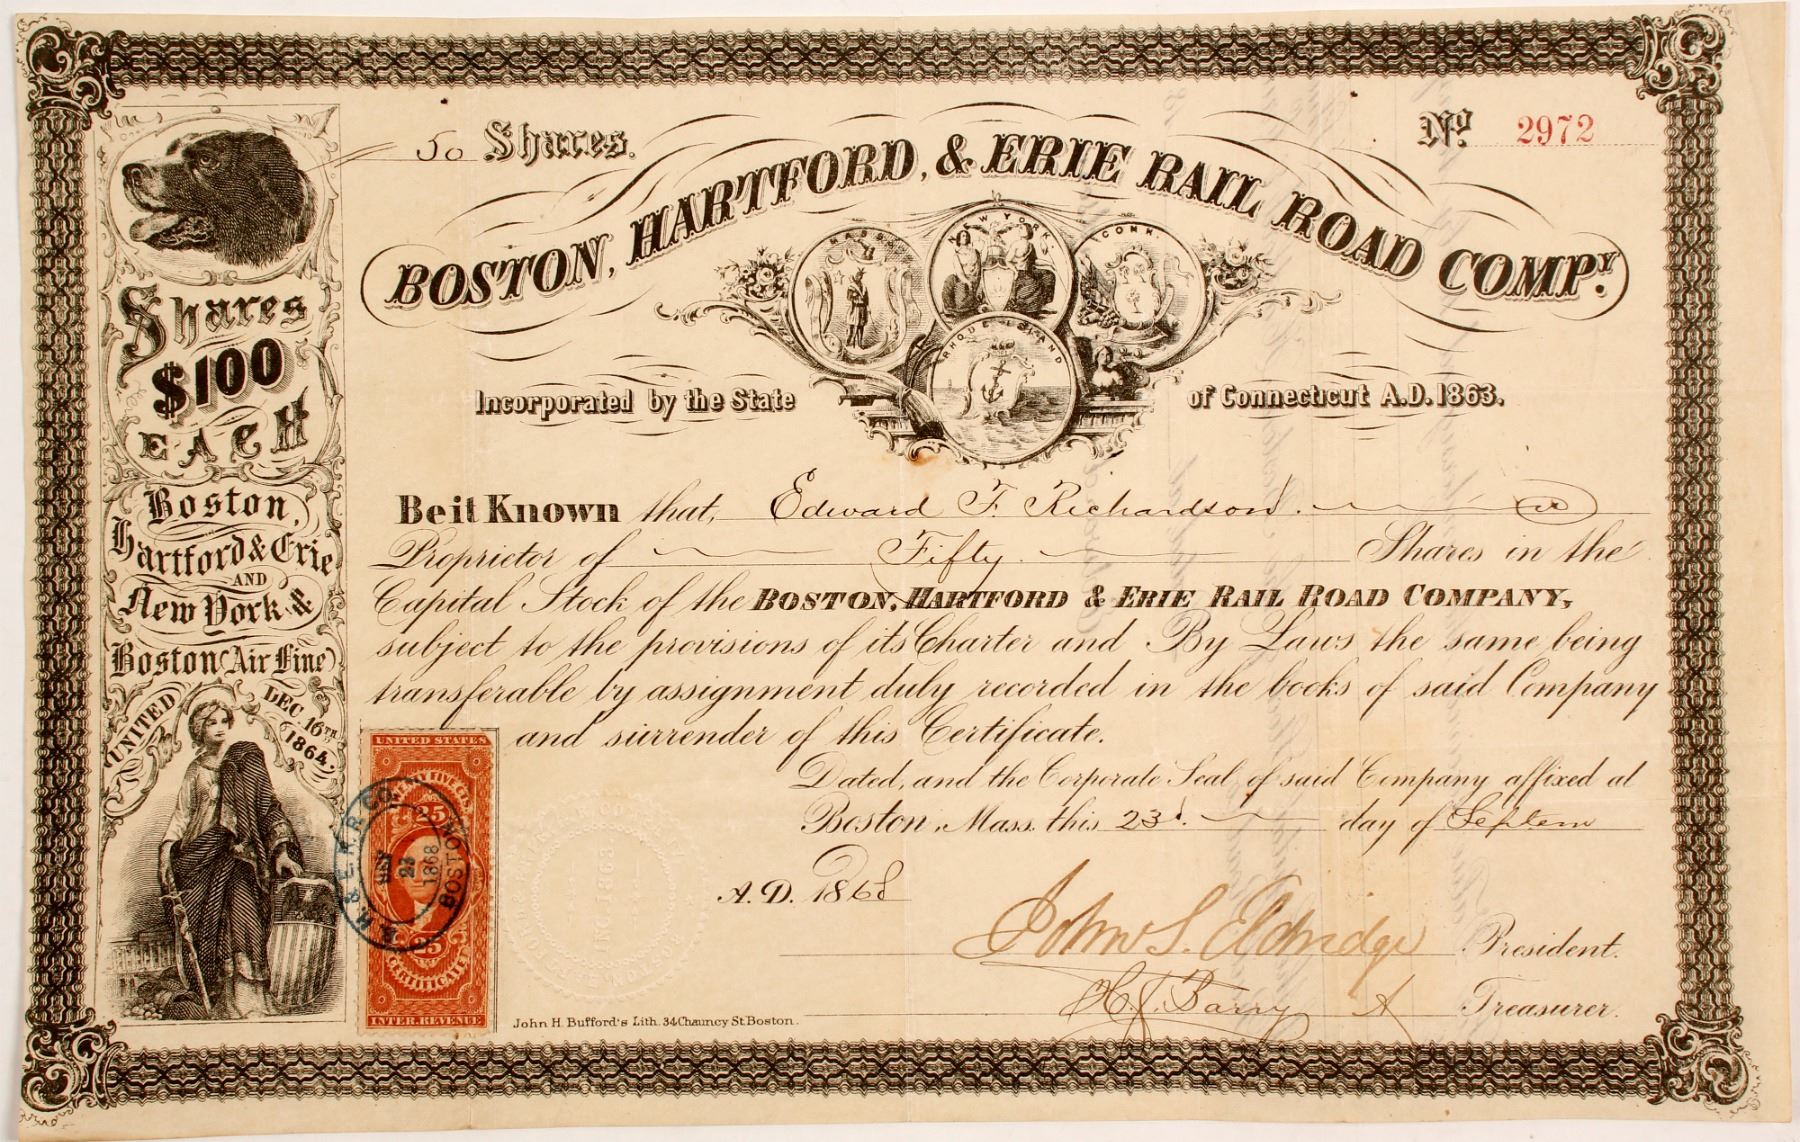 50 Shares.
No. 2972
BOSTON, HARTFORD, & ERIE RAIL ROAD COMPY.
MASS.
NEW YORK.
CONN.
RHODE ISLAND
Incorporated by the State of Connecticut A.D. 1863.
Shares
$100
EACH
Boston,
Hartford & Erie
AND
New York &
Boston (Air Line)
UNITED
DEC. 16TH
1864.
Be it Known that, Edward F. Richardson. is
Proprietor of Fifty Shares in the
Capital Stock of the BOSTON, HARTFORD & ERIE RAIL ROAD COMPANY,
subject to the provisions of its Charter and By Laws, the same being
transferable by assignment duly recorded in the books of said Company
and surrender of this Certificate.
Dated, and the Corporate Seal of said Company affixed at
Boston, Mass. this 23d. day of Septem
A.D. 1868
John S. Eldridge President.
Treasurer.
UNITED STATES
TWENTY FIVE CTS.
25
25
CERTIFICATE
INTER. REVENUE
B. H. & E. R. R. CO. BOSTON
23
1868
John H. Bufford's Lith. 34 Chauncy St. Boston.